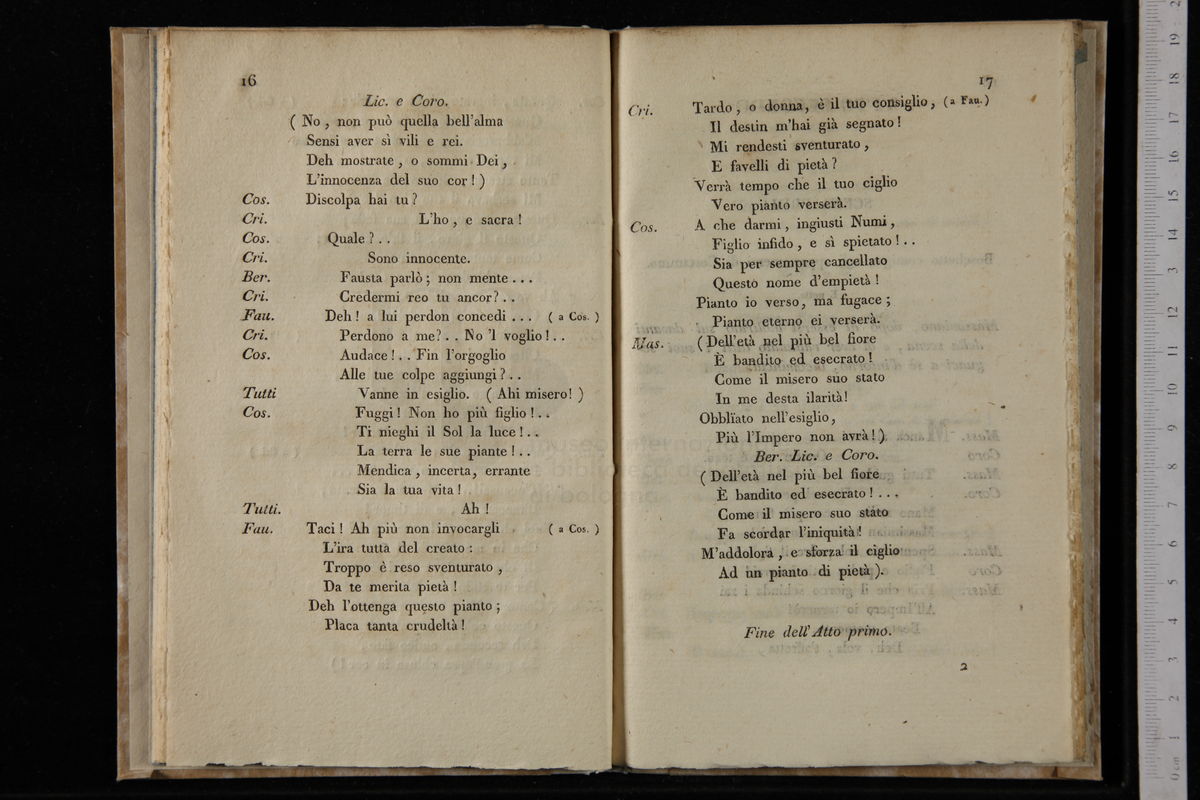 16
Lic. e Coro.
( No , non può quella bell'alma
Sensi aver sì vili e rei.
Deh mostrate , o sommi Dei ,
L'innocenza del suo cor ! )
Cos. Discolpa hai tu ?
Cri. L'ho , e sacra !
Cos. Quale ? . .
Cri. Sono innocente.
Ber. Fausta parlò ; non mente . . .
Cri. Credermi reo tu ancor ? . .
Fau. Deh ! a lui perdon concedi . . . ( a Cos. )
Cri. Perdono a me ? . . No 'l voglio ! . .
Cos. Audace ! . . Fin l'orgoglio
Alle tue colpe aggiungi ? . .
Tutti Vanne in esiglio. ( Ahi misero! )
Cos. Fuggi ! Non ho più figlio ! . .
Ti nieghi il Sol la luce ! . .
La terra le sue piante ! . .
Mendica , incerta, errante
Sia la tua vita !
Tutti. Ah !
Fau. Taci ! Ah più non invocargli ( a Cos. )
L'ira tutta del creato :
Troppo è reso sventurato ,
Da te merita pietà !
Deh l'ottenga questo pianto ;
Placa tanta crudeltà !
17
Cri. Tardo , o donna, è il tuo consiglio, ( a Fau. )
Il destin m'hai già segnato !
Mi rendesti sventurato ,
E favelli di pietà ?
Verrà tempo che il tuo ciglio
Vero pianto verserà.
Cos. A che darmi , ingiusti Numi ,
Figlio infido , e sì spietato ! . .
Sia per sempre cancellato
Questo nome d'empietà !
Pianto io verso, ma fugace ;
Pianto eterno ei verserà.
Mas. ( Dell'età nel più bel fiore
È bandito ed esecrato !
Come il misero suo stato
In me desta ilarità!
Obblïato nell'esiglio,
Più l'Impero non avrà ! )
Ber. Lic. e Coro.
( Dell'età nel più bel fiore
È bandito ed esecrato ! . . .
Come il misero suo stato
Fa scordar l'iniquità !
M'addolora , e sforza il ciglio
Ad un pianto di pietà ).
Fine dell'Atto primo.
2